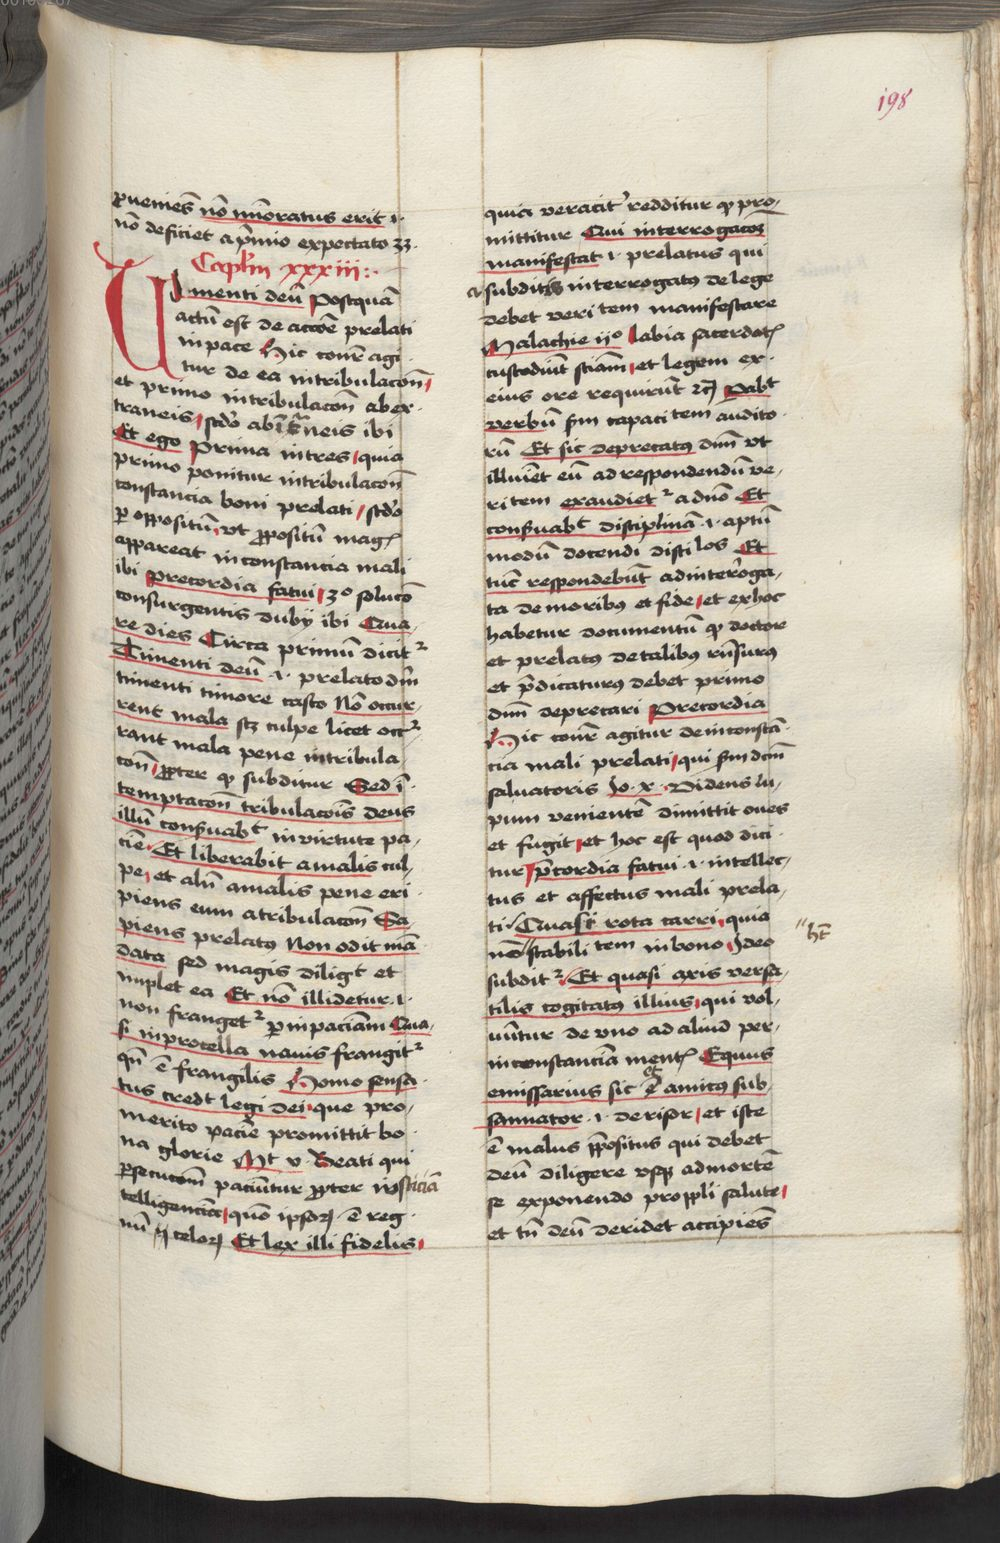 198
ꝓueniēs nō mīoratus erit .i.
nō deficiet a p̄mio expectato 33.
Caplm xxxiii:.
Timenti deū Postquā
actū est de accōe prelati
in pace Hic cōnr agi
tur de ea in tribulacōn
et primo in tribulacōn ab ex
traneis / scdo ab īt̄neis ibi
Et ego Prima in tres / quia
primo ponitur in tribulacōn
constancia boni prelati / scdo
ꝑ oppositū, vt ꝓpositū magꝭ
appareat inconstancia mali
ibi precordia fatui / 3º solucō
consurgentis dubij ibi Qua
re dies Circa primū dicit᷑
Timenti deū .i. prelato dm̄
timenti timore casto Nō occur
rent mala scꝫ culpe licet occ᷑
rant mala pene in tribula
cōn, ꝓpter ꝙ subditur Sed ī
temptacōn tribulacōis deus
illū conẜuabᵗ in virtute pa
ciē. Et liberabit a malis cul
pe, et alū a malis pene eri
piens eum a tribulacōn Sa
piens prelatꝰ Non odit mā
data sed magis diligᵗ et
implet ea Et nō illidetur .i.
non franget᷑ ꝑ inpaciam Qua
si in procella nauis frangit᷑
qn̄ ē frangilis Homo sensa
tus credt legi dei, que pro
merito pacīe promittit bo
na glorie Mᵗ v. Beati qui
ꝑsecutom̄ paciūtur ꝓpter iusticiā
telligenciā, quō ipsoꝝ ē reg
nū ꝗ celoꝝ Et lex illi fidelis,
quia veracit᷑ redditur ꝙ pro
mittitur Qui interrogacōꝫ
manifestat .i. prelatus qui
a subditis interrogatꝰ de lege
debet veritem manifestare
Malachie iiº labia sacerdotꝭ
custodiūt sciam, et legem ex
eius ore requirūt 2c̄ Pabᵗ
verbū ẜm capacitem audito
rū Et sic deprecatꝰ dm̄ vt
illuīet eū ad respondendū ve
ritem exaudiet᷑ a dn̄o Et
conẜuabᵗ disciplinā .i. aptū
modū docendi discilos Et
tūc respondebūt ad interroga
ta de moribꝰ et fide, et ex hoc
habetur documentū ꝙ doctor
et prelatꝰ de talibꝰ rn̄surꝰ
et p̄dicaturꝰ debet primo
dm̄ deprecari Precordia
Hic cōnr agitur de inconstā
cia mali prelati, qui ẜm dcm̄
saluatoris Jo. x. Videns lu
pum venientē dimittit oues
et fugit, et hoc est quod dici
tur, p̄cordia fatui .i. intellec
tus et affectus mali prela
ti. Quasi rota carri, quia
nō stabilitem in bono, Ideo
subdit᷑. Et quasi axis versa
tilis cogitatꝰ illius, qui vol
uūtur de vno ad aliud per
inconstanciā mentꝭ Equus
emissarius sic ē amicꝰ sub
sannator .i. derisor, et iste
ē malus p̄positus qui debet
deū diligere vsꝫ ad mortē
se exponendo pro ppli salute,
et tn̄ deū deridet accipiēs
" hꝫt